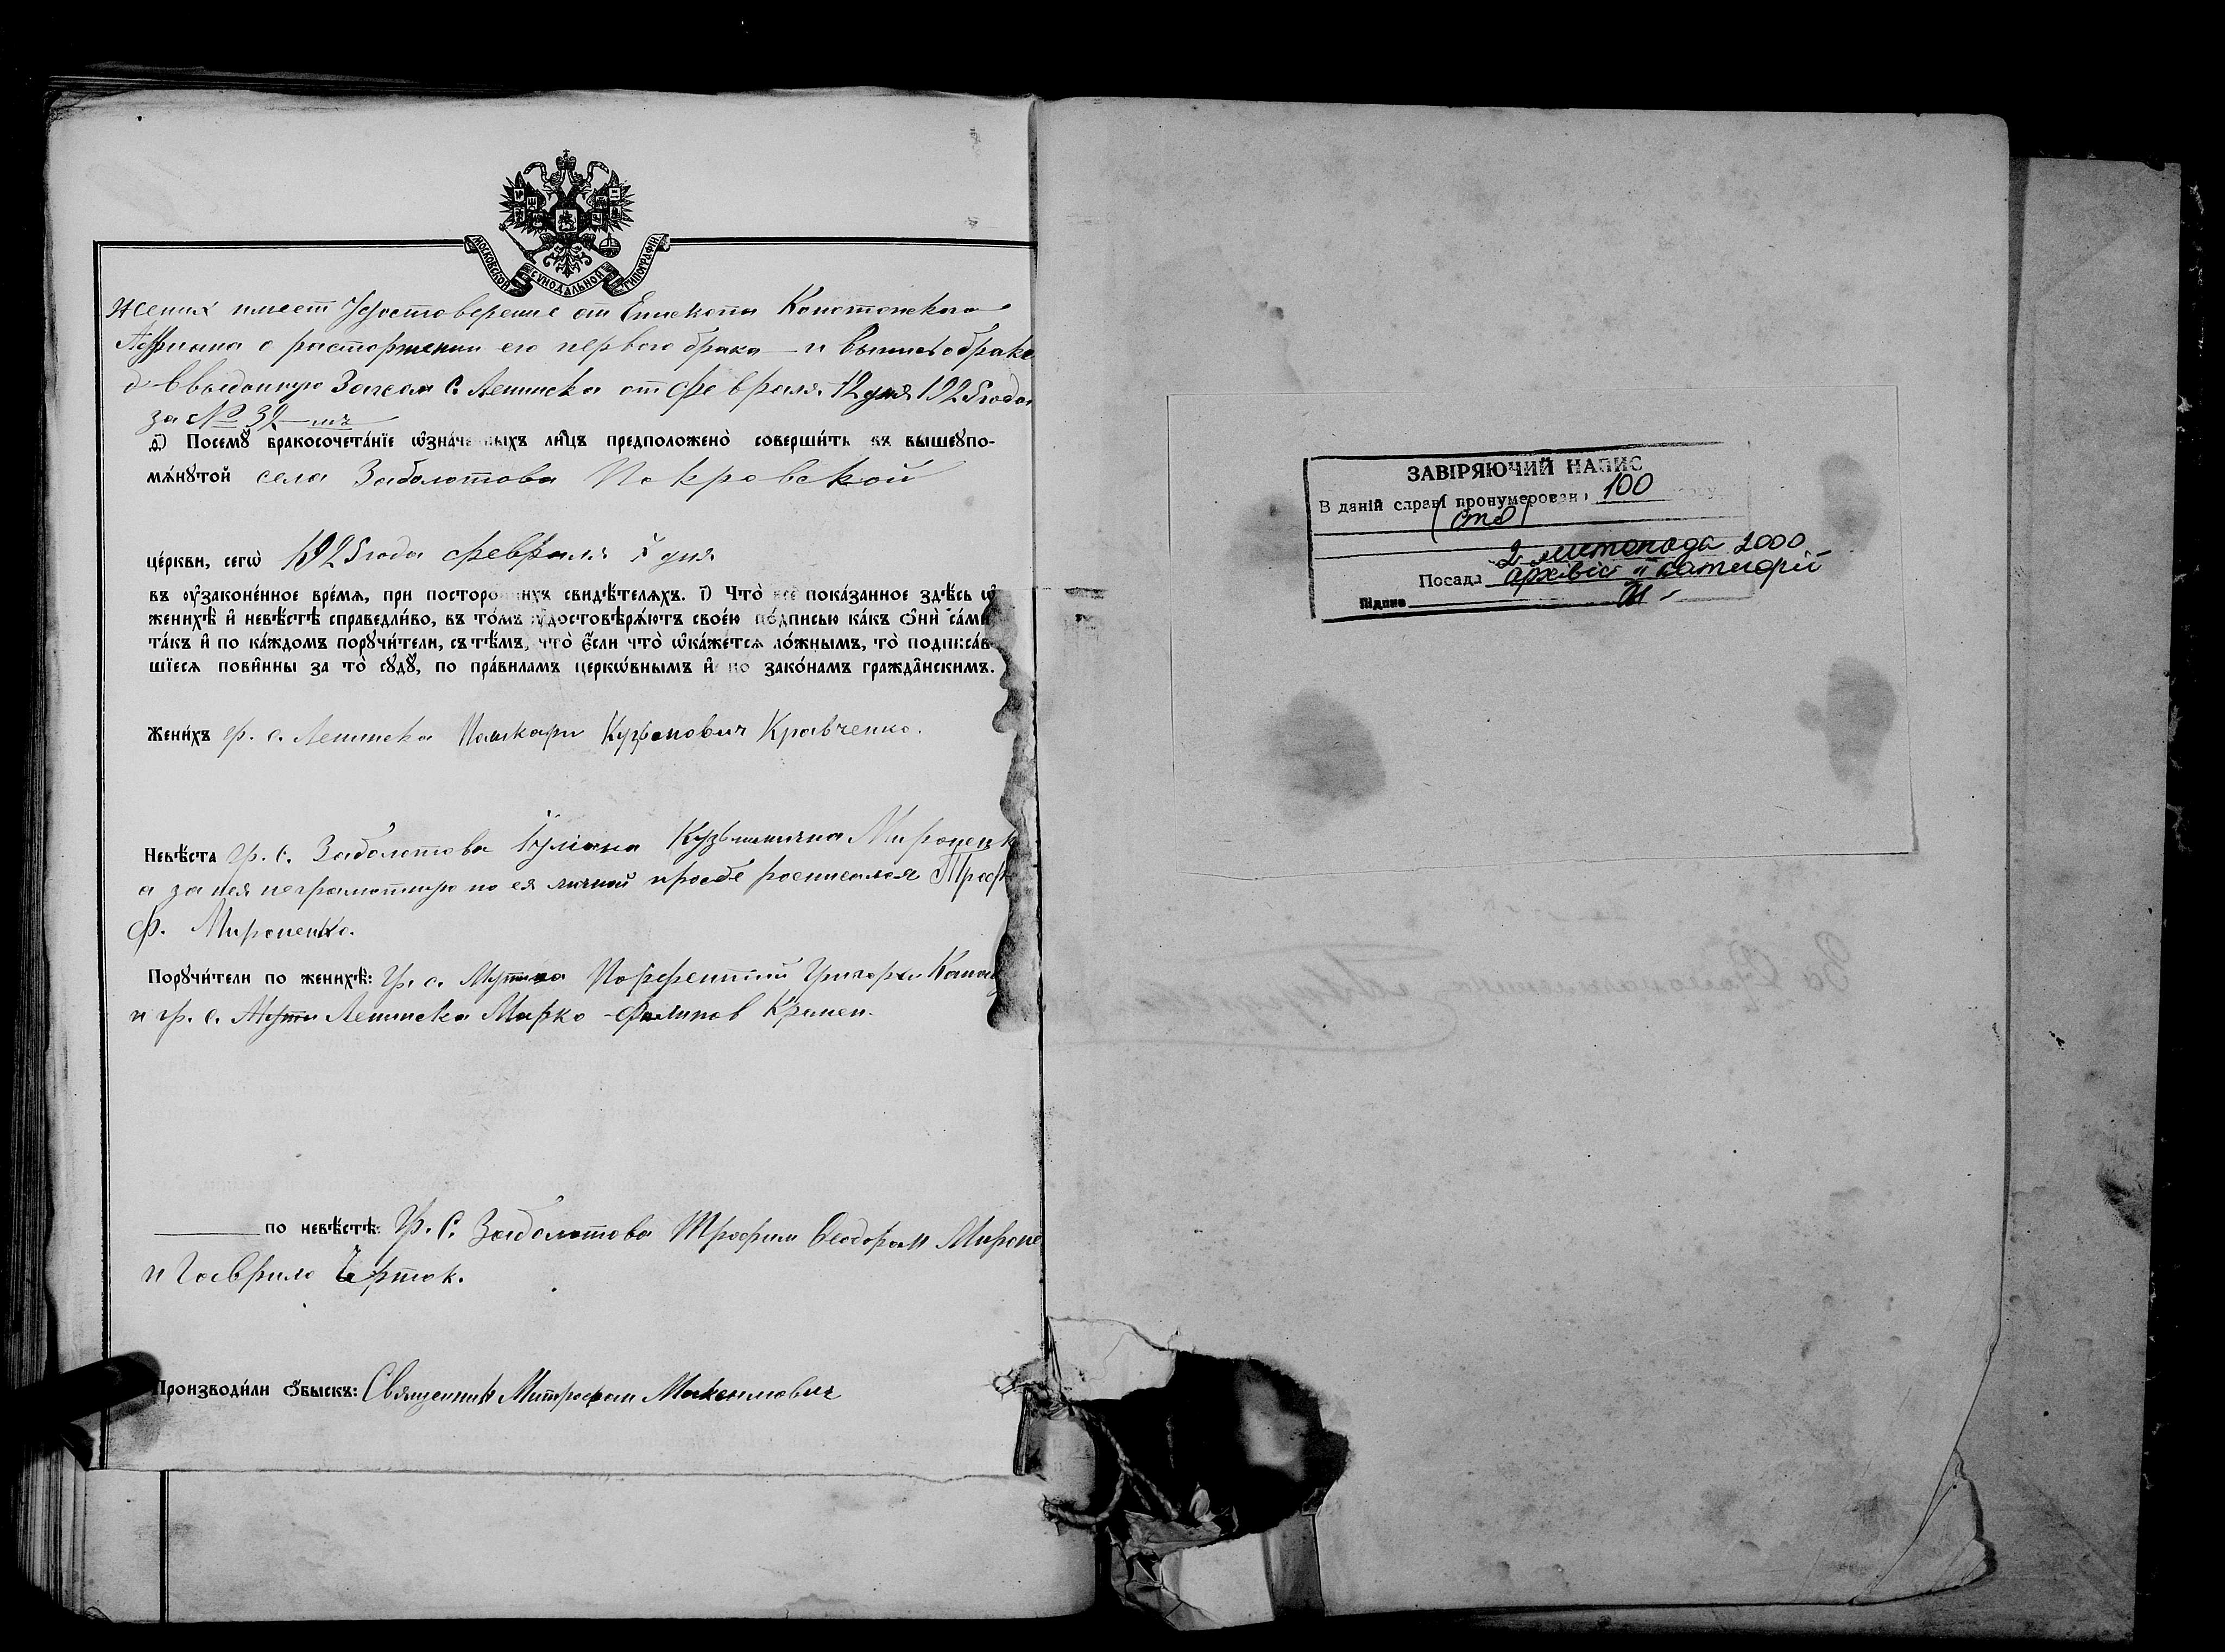 МОСКОВСКОЙ СѴНОДАЛЬНОЙ ТИПОГРАФІИ
Жених имеет Удостоверение от Епископа Конотопского
о расторжении его первого брака и
выданную Загсом с. Ленинска от февраля 12 дня 1925 года
за №
д҃) Посемꙋ̀ бракосочета́нїе ѡ҆зна́ченныхъ ли́цъ предположено̀ соверши́ть въ вышеꙋпо-
мѧ́нꙋтой села Заболотова Покровской
це́ркви, сегѡ̀ 1925 года февраля дня
въ ᲂу҆законе́нное вре́мѧ, при посторо́ннихъ свидѣ́телѧхъ. і҃) Что̀ всѐ пока́занное здѣ́сь ѡ҆
женихѣ̀ и҆ невѣ́стѣ справедли́во, въ то́мъ ᲂу҆достовѣрѧ́ютъ свое́ю по́дписью ка́къ ѻ҆нѝ са́ми
та́къ и҆ по ка́ждомъ порꙋчи́тели, съ тѣ́мъ, что̀ є҆́сли что̀ ѡ҆ка́жетсѧ ло́жнымъ, то̀ подписа́в-
шїесѧ пови́нны за то̀ сꙋдꙋ̀, по пра́виламъ церкѡ́внымъ и҆ по зако́намъ гражда́нскимъ.
Жени́хъ гр. с. Ленинска Кузьмович Кравченко.
Невѣ́ста гр. с. Заболотова Іуліана Кузьминична Мироненк
а за нея неграмотную по ея личной просьбе росписался Троф
Ф. Мироненко.
Порꙋчи́тели по женихѣ̀: Гр. с. Григорьи
и гр. с. Ленинска Марко Филипов
по невѣ́стѣ: Гр. С. Заболотова Трофим Феодоров Мироне
и Гаврило Черток.
Производи́ли ѻ҆́быскъ: Священник Митрофан Максимович
ЗАВІРЯЮЧИЙ НАПИС
В даній справі пронумеровані 100
(сто)
2 листопада 2000
Посада архівіст II категорії
Підпис